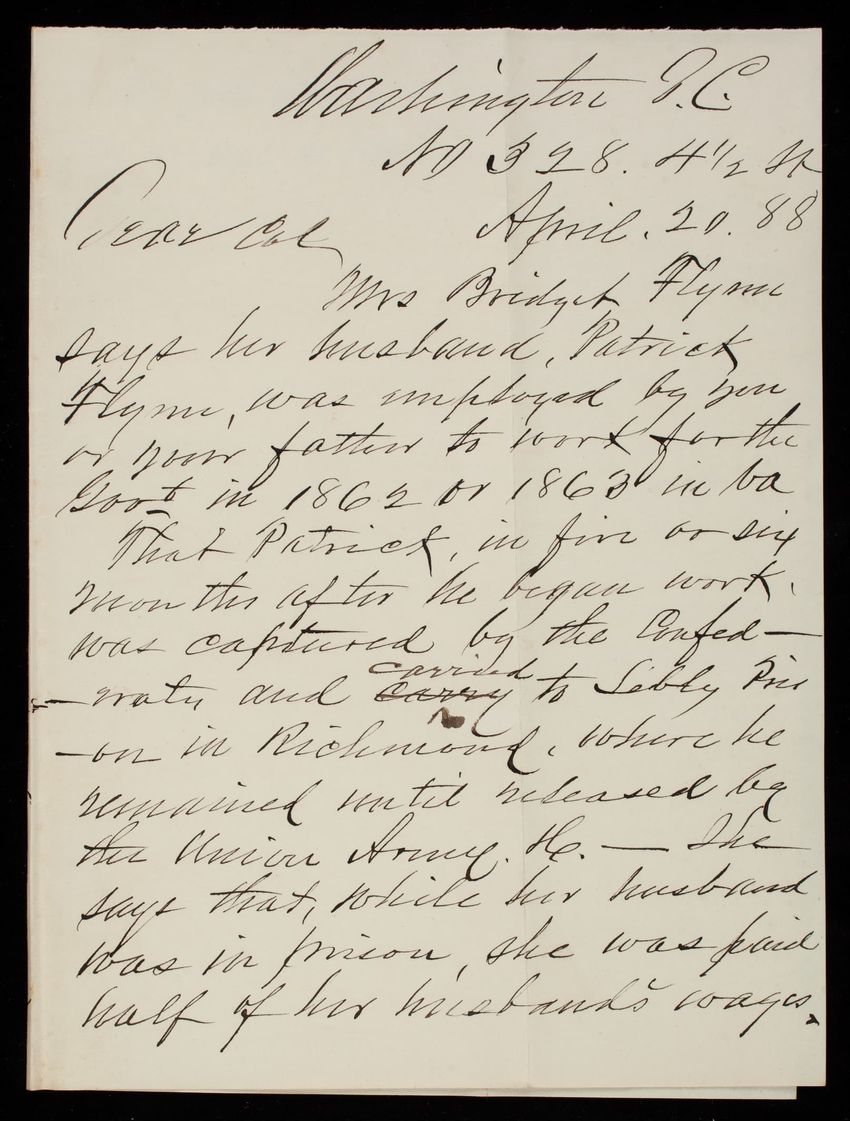 Washington D.C.
No 328. 4 1/2 St
April. 20. 88
Dear Col
Mrs Bridget Flynn
says her husband, Patrick
Flynn, was employed by you
or your father to work for the
Govt in 1862 or 1863 in Va
That Patrick, in five or six
months after he began work.
was captured by the Confed—
—erates and carry carried to Libby Pris
—on in Richmond, where he
remained until released by
the Union Army. — She
says that, while her husband
was in prison, she was paid
half of her husband's wages.